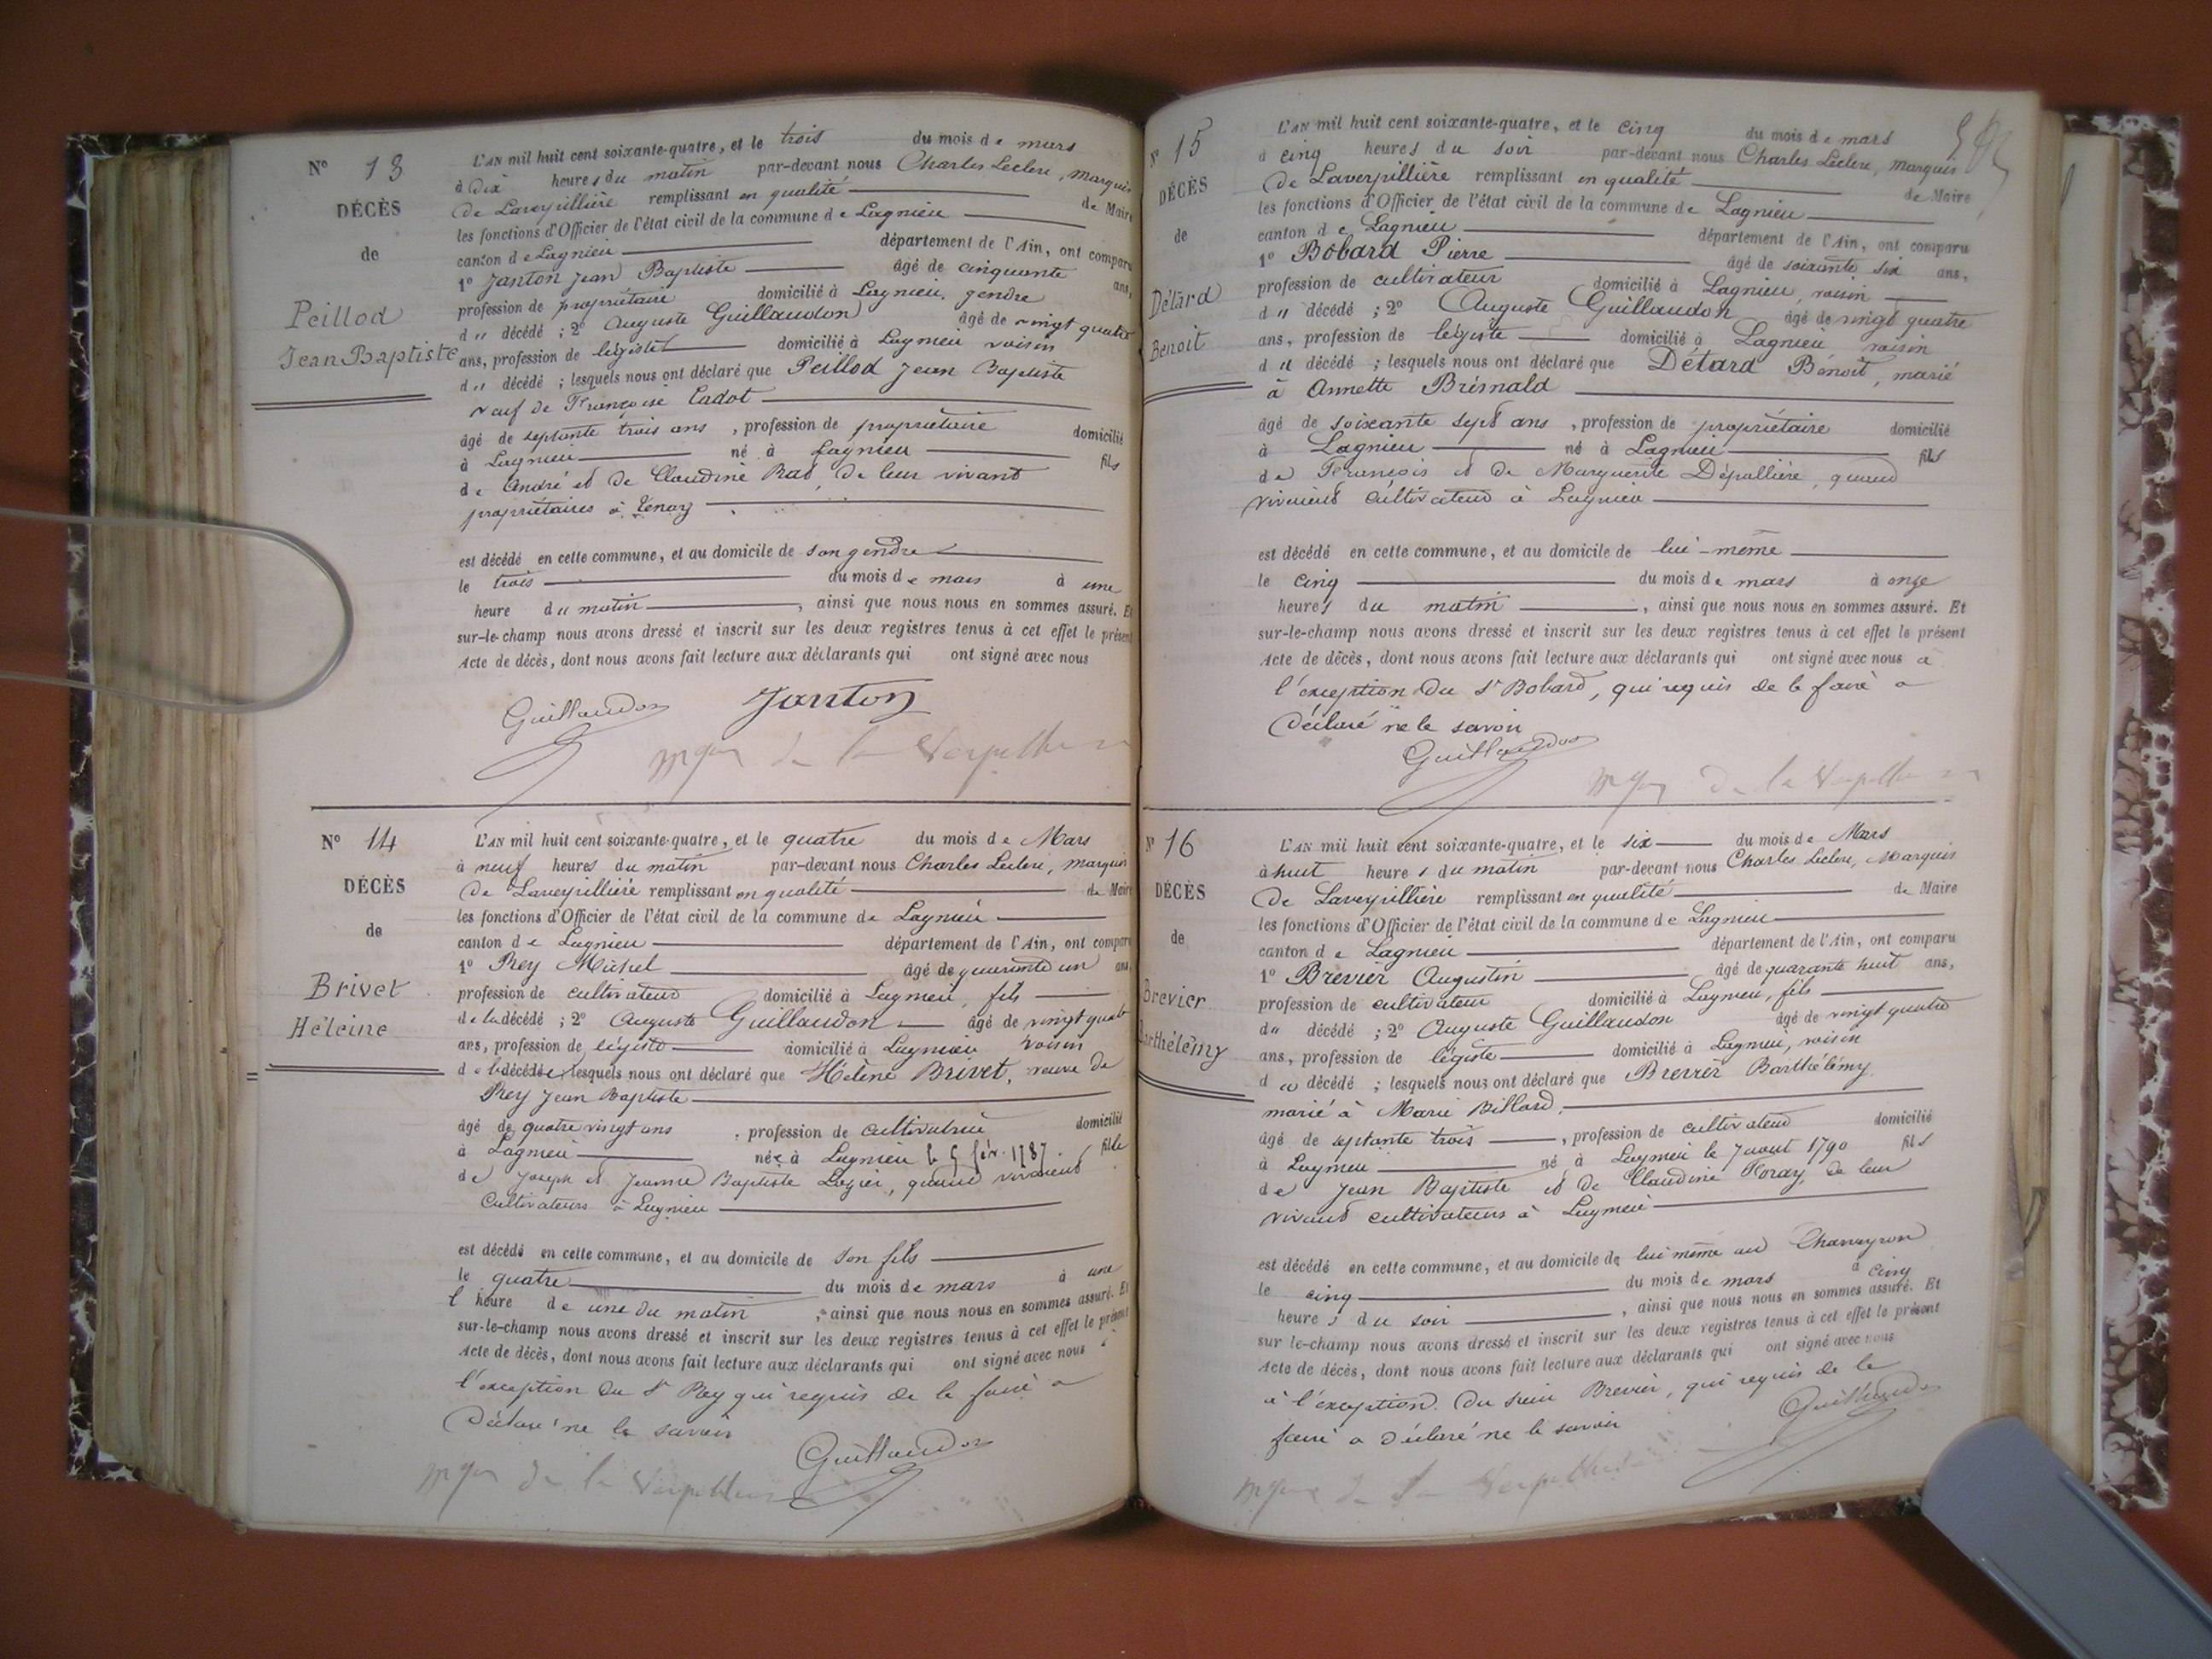 N° 13
DÉCÈS
de
Peillod
Jean Baptiste
L'AN mil huit cent soixante-quatre, et le trois du mois de mars
à Dix heures du matin par-devant nous Charles Leclerc, marquis
de Laverpillière remplissant en qualité de Maire
les fonctions d'Officier de l'état civil de la commune de Lagnieu
canton de Lagnieu département de l'Ain, ont comparu
1° Janton Jean Baptiste âgé de cinquante ans,
profession de propriétaire domicilié à Lagnieu, gendre
du décédé ; 2° Auguste Guillaudon âgé de vingt quatre
ans, profession de légiste domicilié à Lagnieu voisin
du décédé ; lesquels nous ont déclaré que Peillod Jean Baptiste
veuf de Françoise Cadot
âgé de septante trois ans , profession de propriétaire domicilié
à Lagnieu né à Lagnieu fils
de André et de Claudine Rad, de leur vivant
propriétaires à Tenay
est décédé en cette commune, et au domicile de son gendre
le trois du mois de mars à une
heure du matin , ainsi que nous nous en sommes assuré. Et
sur-le-champ nous avons dressé et inscrit sur les deux registres tenus à cet effet le présent
Acte de décès, dont nous avons fait lecture aux déclarants qui ont signé avec nous
Guillaudon Janton
de la Verpillière
N° 14
DÉCÈS
de
Brivet
Héleine
L'AN mil huit cent soixante-quatre, et le quatre du mois de Mars
à neuf heures du matin par-devant nous Charles Leclerc, marquis
de Laverpillière remplissant en qualité de Maire
les fonctions d'Officier de l'état civil de la commune de Lagnieu
canton de Lagnieu département de l'Ain, ont comparu
1° Rey Michel âgé de quarante un ans,
profession de cultivateur domicilié à Lagnieu, fils
de la décédé ; 2° Auguste Guillaudon âgé de vingt quatre
ans, profession de légiste domicilié à Lagnieu voisin
de la décédée, lesquels nous ont déclaré que Hélène Brivet, veuve de
Rey Jean Baptiste
âgé de quatre vingt ans , profession de cultivatrice domicilié
à Lagnieu née à Lagnieu le 5 fév. 1787. fille
de Joseph et Jeanne Baptiste Logier, quand vivaient
cultivateurs à Lagnieu
est décédé en cette commune, et au domicile de son fils
le quatre du mois de mars à une
l heure de une du matin , ainsi que nous nous en sommes assuré. Et
sur-le-champ nous avons dressé et inscrit sur les deux registres tenus à cet effet le présent
Acte de décès, dont nous avons fait lecture aux déclarants qui ont signé avec nous à
l'exception du Sr Rey qui requis de le faire a
déclaré ne le savoir
Guillaudon
de la Verpillière
N° 15
DÉCÈS
de
Détard
Benoit
L'AN mil huit cent soixante-quatre, et le cinq du mois de mars
à cinq heures du soir par-devant nous Charles Leclerc, marquis
de Laverpillière remplissant en qualité de Maire
les fonctions d'Officier de l'état civil de la commune de Lagnieu
canton de Lagnieu département de l'Ain, ont comparu
1° Bobard Pierre âgé de soixante six ans,
profession de cultivateur domicilié à Lagnieu, voisin
du décédé ; 2° Auguste Guillaudon âgé de vingt quatre
ans, profession de légiste domicilié à Lagnieu voisin
du décédé ; lesquels nous ont déclaré que Détard Benoit, marié
à Annette Brisnald
âgé de soixante sept ans , profession de propriétaire domicilié
à Lagnieu né à Lagnieu fils
de François et de Marguerite Dépallière, quand
vivaient cultivateur à Lagnieu
est décédé en cette commune, et au domicile de lui-même
le cinq du mois de mars à onze
heures du matin , ainsi que nous nous en sommes assuré. Et
sur-le-champ nous avons dressé et inscrit sur les deux registres tenus à cet effet le présent
Acte de décès, dont nous avons fait lecture aux déclarants qui ont signé avec nous à
l'exception du Sr Bobard, qui requis de le faire a
déclaré ne le savoir
Guillaudon
de la Verpillière
N° 16
DÉCÈS
de
Brevier
Barthélémy
L'AN mil huit cent soixante-quatre, et le six du mois de Mars
à huit heures du matin par-devant nous Charles Leclerc, Marquis
de Laverpillière remplissant en qualité de Maire
les fonctions d'Officier de l'état civil de la commune de Lagnieu
canton de Lagnieu département de l'Ain, ont comparu
1° Brevier Augustin âgé de quarante huit ans,
profession de cultivateur domicilié à Lagnieu, fils
du décédé ; 2° Auguste Guillaudon âgé de vingt quatre
ans, profession de légiste domicilié à Lagnieu, voisin
du décédé ; lesquels nous ont déclaré que Brevier Barthélémy
marié à Marie Billard,
âgé de septante trois , profession de cultivateur domicilié
à Lagnieu né à Lagnieu le 7 aout 1790 fils
de Jean Baptiste et de Claudine Floray, de leur
vivant cultivateurs à Lagnieu
est décédé en cette commune, et au domicile de lui même au Charveyron
le cinq du mois de mars à cinq
heures du soir , ainsi que nous nous en sommes assuré. Et
sur le-champ nous avons dressé et inscrit sur les deux registres tenus à cet effet le présent
Acte de décès, dont nous avons fait lecture aux déclarants qui ont signé avec nous
à l'exception du sieur Brevier, qui requis de le
faire a déclaré ne le savoir
Guillaudon
de la Verpillière